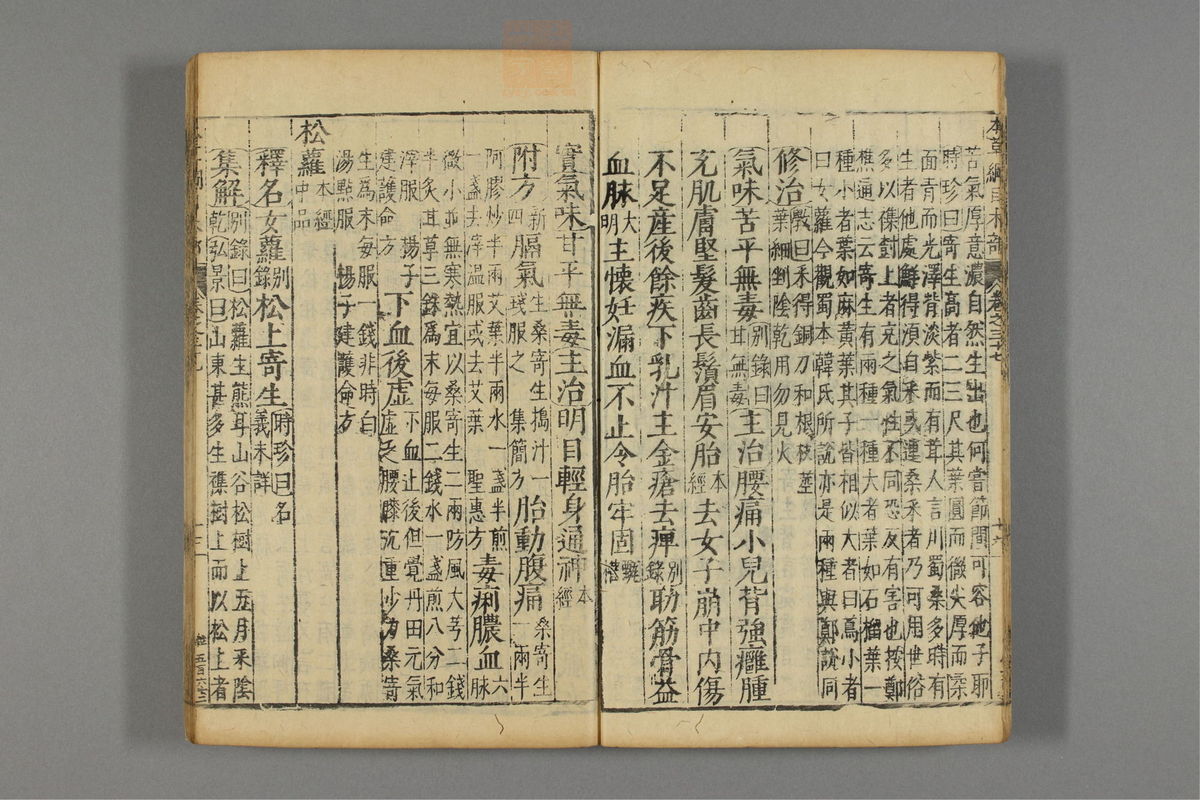 苦氣厚意濃自然生出也何嘗節間可容他子耶
時珍曰寄生高者二三尺其葉圓而微尖厚而柔
面青而光澤背淡紫而有茸人言川蜀桑多時有
生者他處鮮得須自采或連桑采者乃可用世俗
多以雜樹上者充之氣性不同恐反有害也按鄭
樵通志云寄生有兩種一種大者葉如石榴葉一
種小者葉如麻黃葉其子皆相似大者曰蔦小者
曰女蘿今觀蜀本韓氏所說亦是兩種與鄭說同
修治斅曰采得銅刀和根枝莖
葉細剉陰乾用勿見火
氣味苦平無毒別錄曰甘無毒主治腰痛小兒背強癰腫
充肌膚堅髮齒長鬚眉安胎本經去女子崩中內傷
不足產後餘疾下乳汁主金瘡去痺別錄助筋骨益
血脉大明主懷妊漏血不止令胎牢固甄權
實氣味甘平無毒主治明目輕身通神本經
附方新四膈氣生桑寄生搗汁一盞服之 集簡方胎動腹痛桑寄生一兩半
阿膠炒半兩艾葉半兩水一盞半煎
一盞去滓溫服或去艾葉 聖惠方毒痢膿血六脉
微小並無寒熱宜以桑寄生二兩防風大芎二錢
半炙甘草三銖爲末每服二錢水一盞煎八分和
滓服 楊子建護命方下血後虛下血止後但覺丹田元氣虛乏腰膝沉重少力桑寄
生爲末每服一錢非時白
湯點服 楊子建護命方
松蘿本經中品
釋名女蘿別錄松上寄生時珍曰名義未詳
集解別錄曰松蘿生熊耳山谷松樹上五月采陰
乾弘景曰山東甚多生雜樹上而以松上者